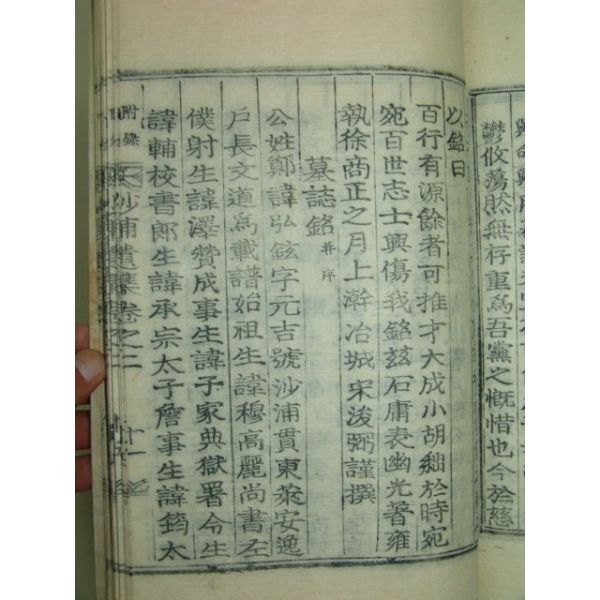 鬱攸蕩然無存重爲吾黨之慨惜也今於慈
以銘曰
百行有源餘者可推才大成小胡絀於時宛
宛百世志士興傷我銘玆石庸表幽光著雍
執徐商正之月上澣冶城宋浚弼謹撰
墓誌銘 幷序
公姓鄭諱弘鉉字元吉號沙浦貫東萊安逸
戶長文道爲載譜始祖生諱穆高麗尚書左
僕射生諱澤贊成事生諱子家典獄署令生
諱輔校書郎生諱承宗太子詹事生諱筠太
沙浦遺集卷之二
附錄
十一